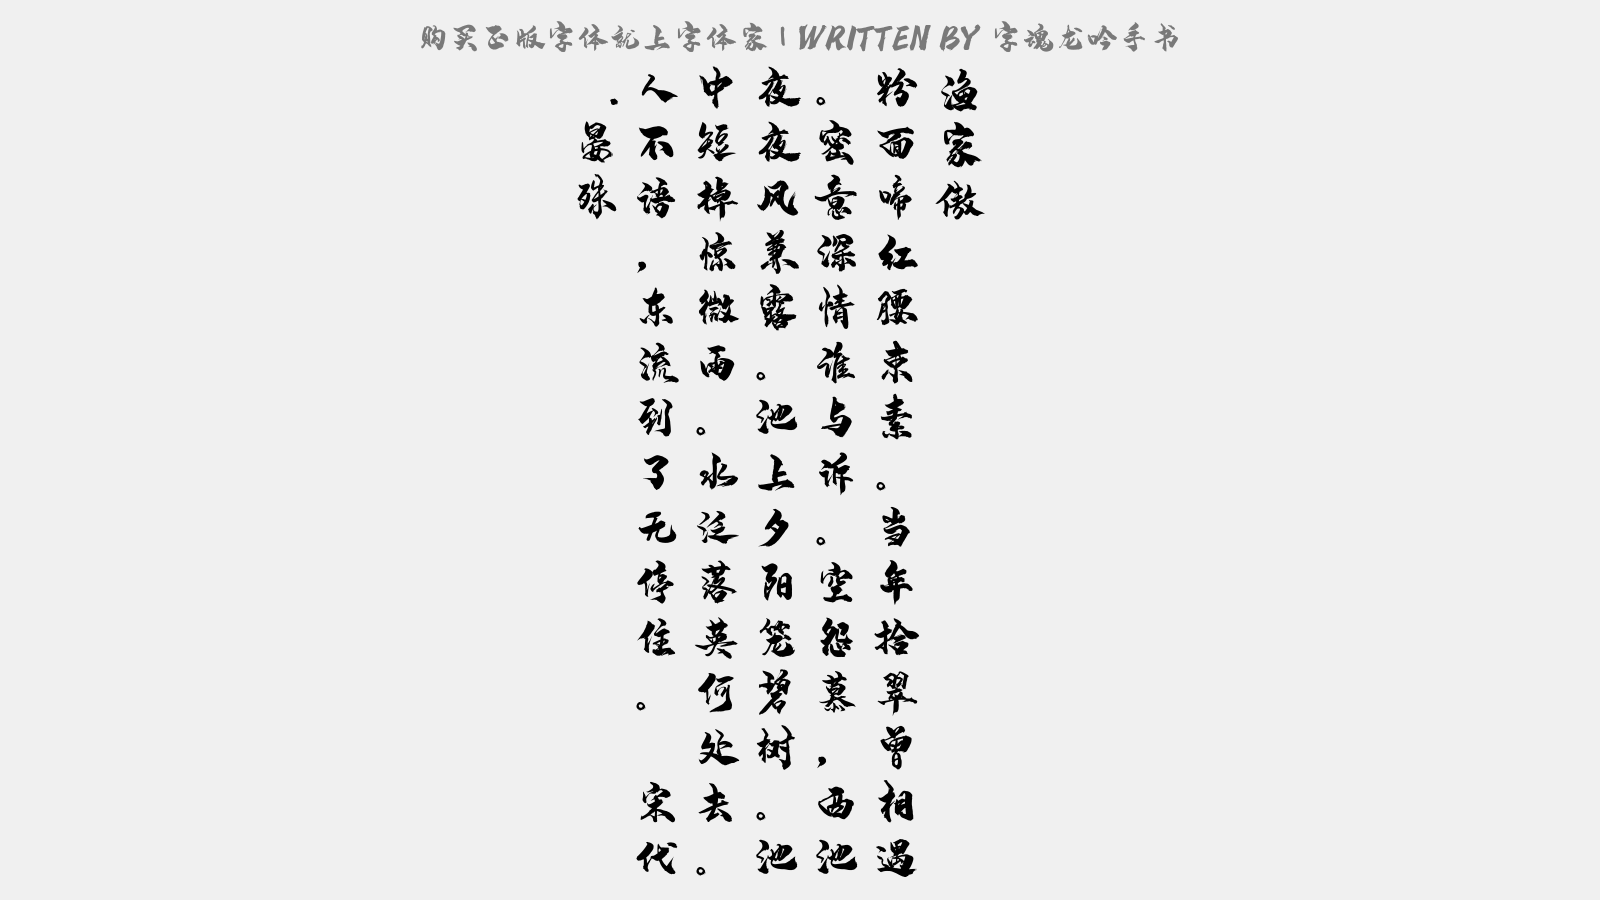 购买正版字体就上字体家 | WRITTEN BY 字魂龙吟手书
渔家傲
粉面啼红腰束素。当年拾翠曾相遇
。密意深情谁与诉。空怨慕，西池
夜夜风兼露。池上夕阳笼碧树。池
中短棹惊微雨。水泛落英何处去。
人不语，东流到了无停住。 宋代
.晏殊